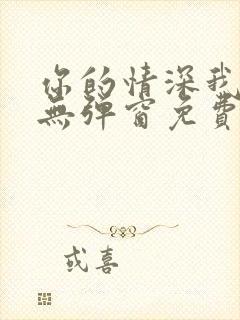 你的情深我
無彈窗免費
或喜